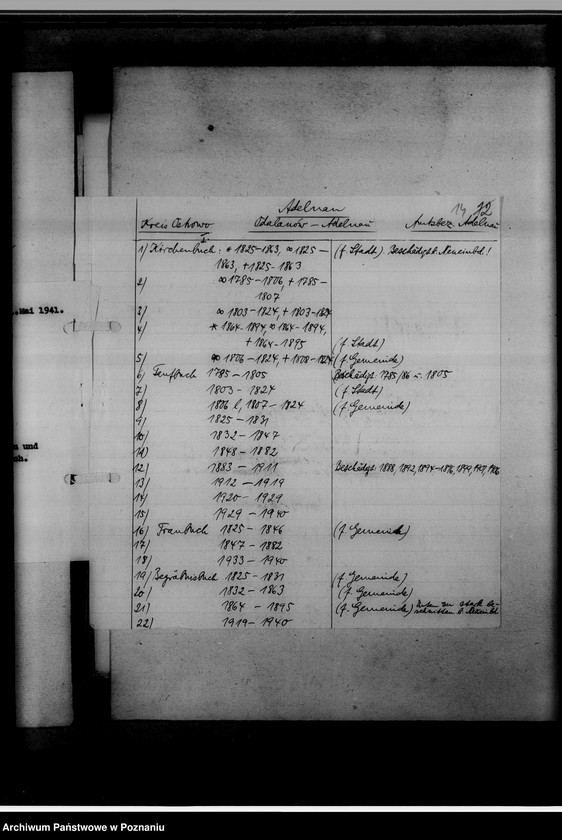 14 12
Adelnau
Kreis Ostrowo Odolanów – Adelnau Amtsbez. Adelnau
I.
1/ Kirchenbuch: * 1825–1863, ∞ 1825– (f. Stadt) Beschädigt. Neueinbd.!
1863, + 1825–1863
2/ ∞ 1785–1806, + 1785–
1807
3/ ∞ 1803–1824, + 1803–1824
4/ * 1864–1894, ∞ 1864–1894,
+ 1864–1895 (f. Stadt)
5/ ∞ 1806–1824, + 1808–1824 (f. Gemeinde)
6/ Taufbuch 1785–1805 Beschädgt. 1785/86 u. 1805
7/ 1803–1824 (f. Stadt)
8/ 1806, 1807–1824 (f. Gemeinde)
9/ 1825–1831
10/ 1832–1847
11/ 1848–1882
12/ 1883–1911 Beschädgt. 1888, 1892, 1894–1896, 1899,
13/ 1912–1919
14/ 1920–1929
15/ 1929–1940
16/ Traubuch 1825–1846 (f. Gemeinde)
17/ 1847–1882
18/ 1933–1940
19/ Begräbnisbuch 1825–1831 (f. Gemeinde)
20/ 1832–1863 (f. Gemeinde)
21/ 1864–1895 (f. Gemeinde) unten zu stark be-
schnitten Neueinbd.
22/ 1919–1940
.Mai 1941.
und
ch.
Archiwum Państwowe w Poznaniu